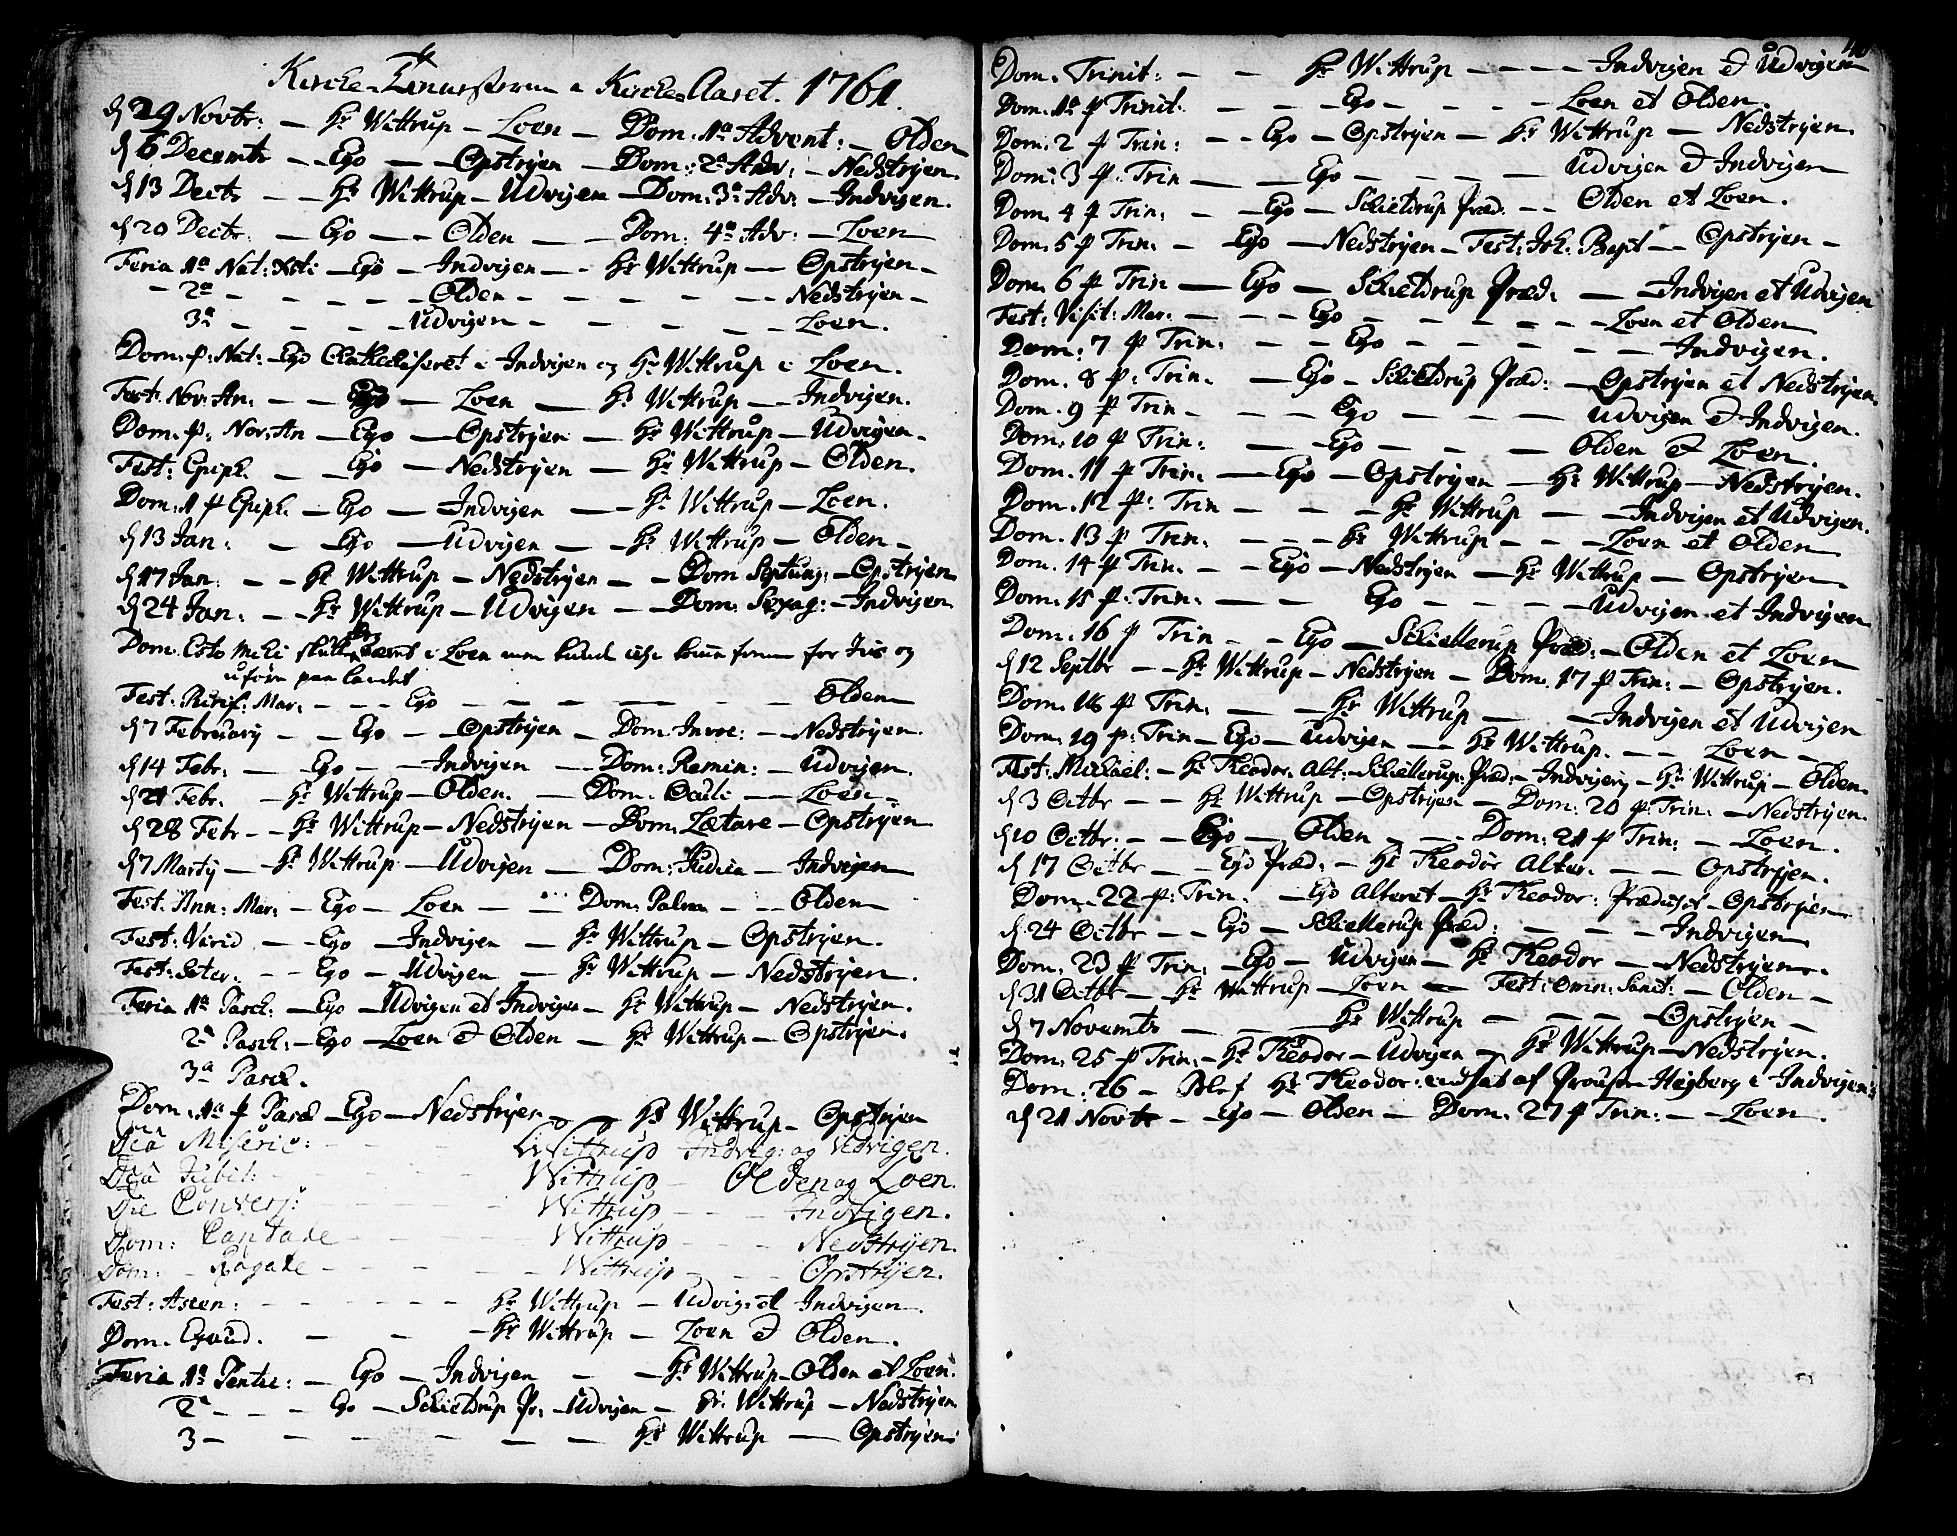 Kirche i Kircke Aaret. 1761.
d 29 Novbr: — Hr Wittrup — Loen — Dom: 1a Advent: — Olden
d 6 Decembr — Ego — Opstryen — Dom: 2a Adv: — Nedstryen.
d 13 Decbr — Hr Wittrup — Udvigen — Dom: 3a Adv: — Indvigen.
d 20 Decbr: — Ego — Olden — Dom: 4a Adv: — Loen
Feria 1a Nat: Xsti — Ego — Indvigen — Hr Wittrup — Opstryen —
2a — Olden — Nedstryen —
3a — Udvigen — Loen.
Dom. p. Nat: — Ego Chatheciseret i Indvigen og Hr Wittrup i Loen.
Fest. Nov. An: — Ego — Loen — Hr Wittrup — Indvigen.
Dom. p: Nov. An — Ego — Opstryen — Hr Wittrup — Udvigen.
Fest: Epiph. — Ego — Nedstryen — Hr Wittrup — Olden.
Dom. 1 p Epiph. — Ego — Indvigen — Hr Wittrup — Loen.
d 13 Jan: — Ego — Udvigen — Hr Wittrup — Olden —
d 17 Jan: — Hr Wittrup — Nedstryen — Dom Septuag: — Opstryen
d 24 Jan: — Hr Wittrup — Udvigen — Dom: Sexag: — Indvigen
Dom. Esto Mihi skulle været i Loen men kunde icke komme frem for Iis og
uföre paa landet
Fest: Purif: Mar: — Ego — Olden
d 7 February — Ego — Opstryen — Dom: Invoc: — Nedstryen.
d 14 Febr: — Ego — Indvigen — Dom: Remin: — Udvigen.
d 21 Febr. — Hr Wittrup — Olden. — Dom: Oculi — Loen —
d 28 Febr — Hr Wittrup — Nedstryen — Dom. Lætare — Opstryen
d 7 Martij — Hr Wittrup — Udvigen — Dom: Judica — Indvigen
Fest: Ann: Mar: — Ego — Loen — Dom: Palm — Olden
Fest: Virid — Ego — Indvigen — Hr Wittrup — Opstryen.
Fest: — Ego — Udvigen — Hr Wittrup — Nedstryen.
Feria 1a Pasch: — Ego — Udvigen et Indvigen — Hr Wittrup — Nedstryen.
2a Pasch: — Ego — Loen et Olden — Hr Wittrup — Opstryen.
3a Pasch.
Dom. 1a p Pasc — Ego — Nedstryen — Hr Wittrup — Opstryen
Dca Miseric: — Wittrup Indvig: og Udvigen.
Dca Jubil: — Wittrup — Olden og Loen.
Die Convers: — Wittrup — Indvigen.
Dom: Cantate — Wittrup — Nedstryen.
Dom: Rogate — Wittrup — Opstryen.
Fest: Ascen: — Hr Wittrup — Udvig: et Indvigen
Dom. Exaud. — Hr Wittrup — Loen et Olden.
Feria 1a Pentec: — Ego — Indvigen — Hr Wittrup — Olden et Loen.
2a — Ego — Schieldrup Pr. — Udvigen — Hr. Wittrup — Nedstryen
3 — Hr Wittrup — Opstryen
Dom. Trinit: — Hr Wittrup — Indvigen et Udvigen
Dom. 1a p Trinit. — Ego — Loen et Olden.
Dom. 2 p Trin: — Ego — Opstryen — Hr Wittrup — Nedstryen.
Dom: 3 p. Trin — Ego — Udvigen et Indvigen
Dom. 4 p Trin: — Ego — Schieldrup Præd: — Olden et Loen.
Dom: 5 p Trin: — Ego — Nedstryen — Fest: Joh: Bapt — Opstryen —
Dom. 6 p Trin — Ego — Schieldrup Præd: — Indvigen et Udvigen
Fest: Visit: Mar. — Ego — Loen et Olden
Dom: 7 p Trin: — Ego — Indvigen.
Dom. 8 p: Trin. — Ego — Schieldrup Præd: — Opstryen et Nedstryen.
Dom. 9 p Trin — Ego — Udvigen et Indvigen.
Dom: 10 p Trin: — Ego — Olden et Loen.
Dom. 11 p Trin: — Ego — Opstryen — Hr Wittrup — Nedstryen.
Dom. 12 p: Trin — Hr Wittrup — Indvigen et Udvigen.
Dom. 13 p Trin: — Hr Wittrup — Loen et Olden
Dom. 14 p Trin. — Ego — Nedstryen — Hr Wittrup — Opstryen
Dom. 15 p: Trin: — Ego — Udvigen et Indvigen
Dom. 16 p Trin — Ego — Schiellerup Præd: — Olden et Loen
d 12 Septbr — Hr Wittrup — Nedstryen — Dom. 17 p Trin: — Opstryen.
Dom. 18 p Trin: — Hr Wittrup — Indvigen et Udvigen
Dom. 19 p: Trin — Ego — Udvigen — Hr Wittrup. — Loen —
Fest: Michael: — Hr Theodor. Alt. — Schiellerup. Præd: — Indvigen — Hr Wittrup — Olden.
d 3 Octbr — Hr Wittrup — Opstryen — Dom: 20 p Trin: — Nedstryen.
d 10 Octbr: — Ego — Olden — Dom: 21 p Trin: — Loen.
d 17 Octbr — Ego Præd: — Hr Theodor Alter. — Opstryen.
Dom. 22 p: Trin. — Ego Alteret — Hr Theodor: — Opstryen
d 24 Octbr — Ego — Schiellerup Præd: — Indvigen
Dom. 23 p Trin: — Ego — Udvigen — Hr Theodor — Nedstryen.
d 31 Octbr — Hr Wittrup — Loen — Fest: Omn: Sanct: — Olden —
d 7 Novembr — Hr Wittrup — Opstryen —
Dom: 25 p Trin: — Hr Theodor — Udvigen — Hr Wittrup — Nedstryen.
Dom: 26 — Blef Hr Theodor: indsat af Proust Heyberg i Indvigen.
d 21 Novbr — Ego — Olden — Dom. 27 p Trin: — Loen.